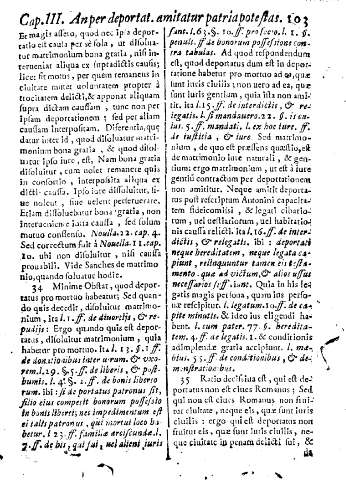 Cap.III. An per deportat. amitatur patria potestas. 103
Et magis assero, quod nec ipsa deportatio
est causa per se sola, ut dissoluatur
matrimonium bona gratia, nisi interueniat
aliqua ex supradictis causis;
licet sit motus, per quem remanens in
ciuitate mutet voluntatem propter à
trocitatem delicti, & apponat aliquam
supra dictam causam, tunc non per
ipsam deportationem; sed per aliam
causam interpositam. Differentia, quæ
datur inter id, quod dissoluatur matrimonium
bona gratia, & quod dissoluatur
ipso iure, est. Nam bona gratia
dissoluitur, cum nolet remanere quis
in consortio, interposita aliqua ex
dicta causa. Ipso iure dissoluitur, siue
nolent, siue velent perseuerare.
Etiam dissoluebatur bona gratia, non
interueniente iusta causa, sed solum
motus
Sed correctum fuit à Nouella 11. cap.
10. ubi non dissoluitur, nisi causa
prouabili. Vide Sanches de matrimonio,
quando soluatur hodie.
34 Minime Obstat, quod deportatus
pro mortuo habeatur; Sed quando
quis decedit, dissoluitur matrimonium,
ita l. 1. ff. de diuortijs, & repudijs:
Ergo quando quis est deportatus,
dissoluitur matrimonium, quia
habetur pro mortuo. Ita l. 13. §. 1. ff.
de donationibus inter virum, & vxorem.
l. 29. §. 5. ff. de liberis, & posthumis.
l. 4. §. 2. ff. de bonis libertorum.
ibi: si deportatus patronus sit,
filio eius competit bonorum possessio
in bonis liberti; nec impedimentum est
ei talis patronus, qui mortui loco habetur.
l. 23. ff. familiæ erciscundæ. l.
7. ff. de his, qui sui, vel alieni iuris
sunt. l. 63. §. 10. ff. pro socio. l. 1. §.
penult. ff. de bonorum possessione contra
tabulas. Ad quod respondendum
est, quod deportatus dum est in deportatione
habetur pro mortuo ad ea, quæ
sunt iuris ciuilis; non vero ad ea, quæ
sunt iuris gentium, quia illa non amittit.
Ita l. 15. ff. de interdictis, & relegatis.
l. si mandauero. 22. §. is cuius.
5. ff. mandati, l. ex hoc iure. ff.
de iustitia, & iure. Sed matrimonium,
de quo est præsens quæstio, est
de matrimonio iure naturali, & gentium;
ergo cum deportatus, est ut iure
gentium contractum per deportationem
non amittitur. Neque amittit deportatus
post rescriptum Antonini capacitatem
fideicomissi, & legati cibariorum,
vel vestiariorum, vel habitationis
causa relicti. Ita l. 16. ff. de interdictis,
& relegatis. ibi: deportati
neque hereditatem, neque legata
capiunt, relinquuntur tamen ei testamento.
quæ ad victum, & alios usus
necessarios sufficiunt. Quia in his legatis
magis persona, quam ius personæ
respicitur. l. legatum. 10. ff. de capite
minutis. & ideo ius eligendi habent.
l. cum pater. 77. §. hereditatem.
4. ff. de legatis. 2. & conditionis
adimplendæ gratia accipiunt. l. mævius.
55. ff. de conditionibus, & demonstrationibus.
35 Ratio decissiua est, qui est deportatus
non est ciues Romanus; Sed
qui non est ciues Romanus non fruitur
ciuitate, neque eis, quæ sunt iuris
ciuilis: ergo qui est deportatus non
fruitur eis, quæ sunt iuris ciuilis, neque
ciuitate in penam delicti sui, &